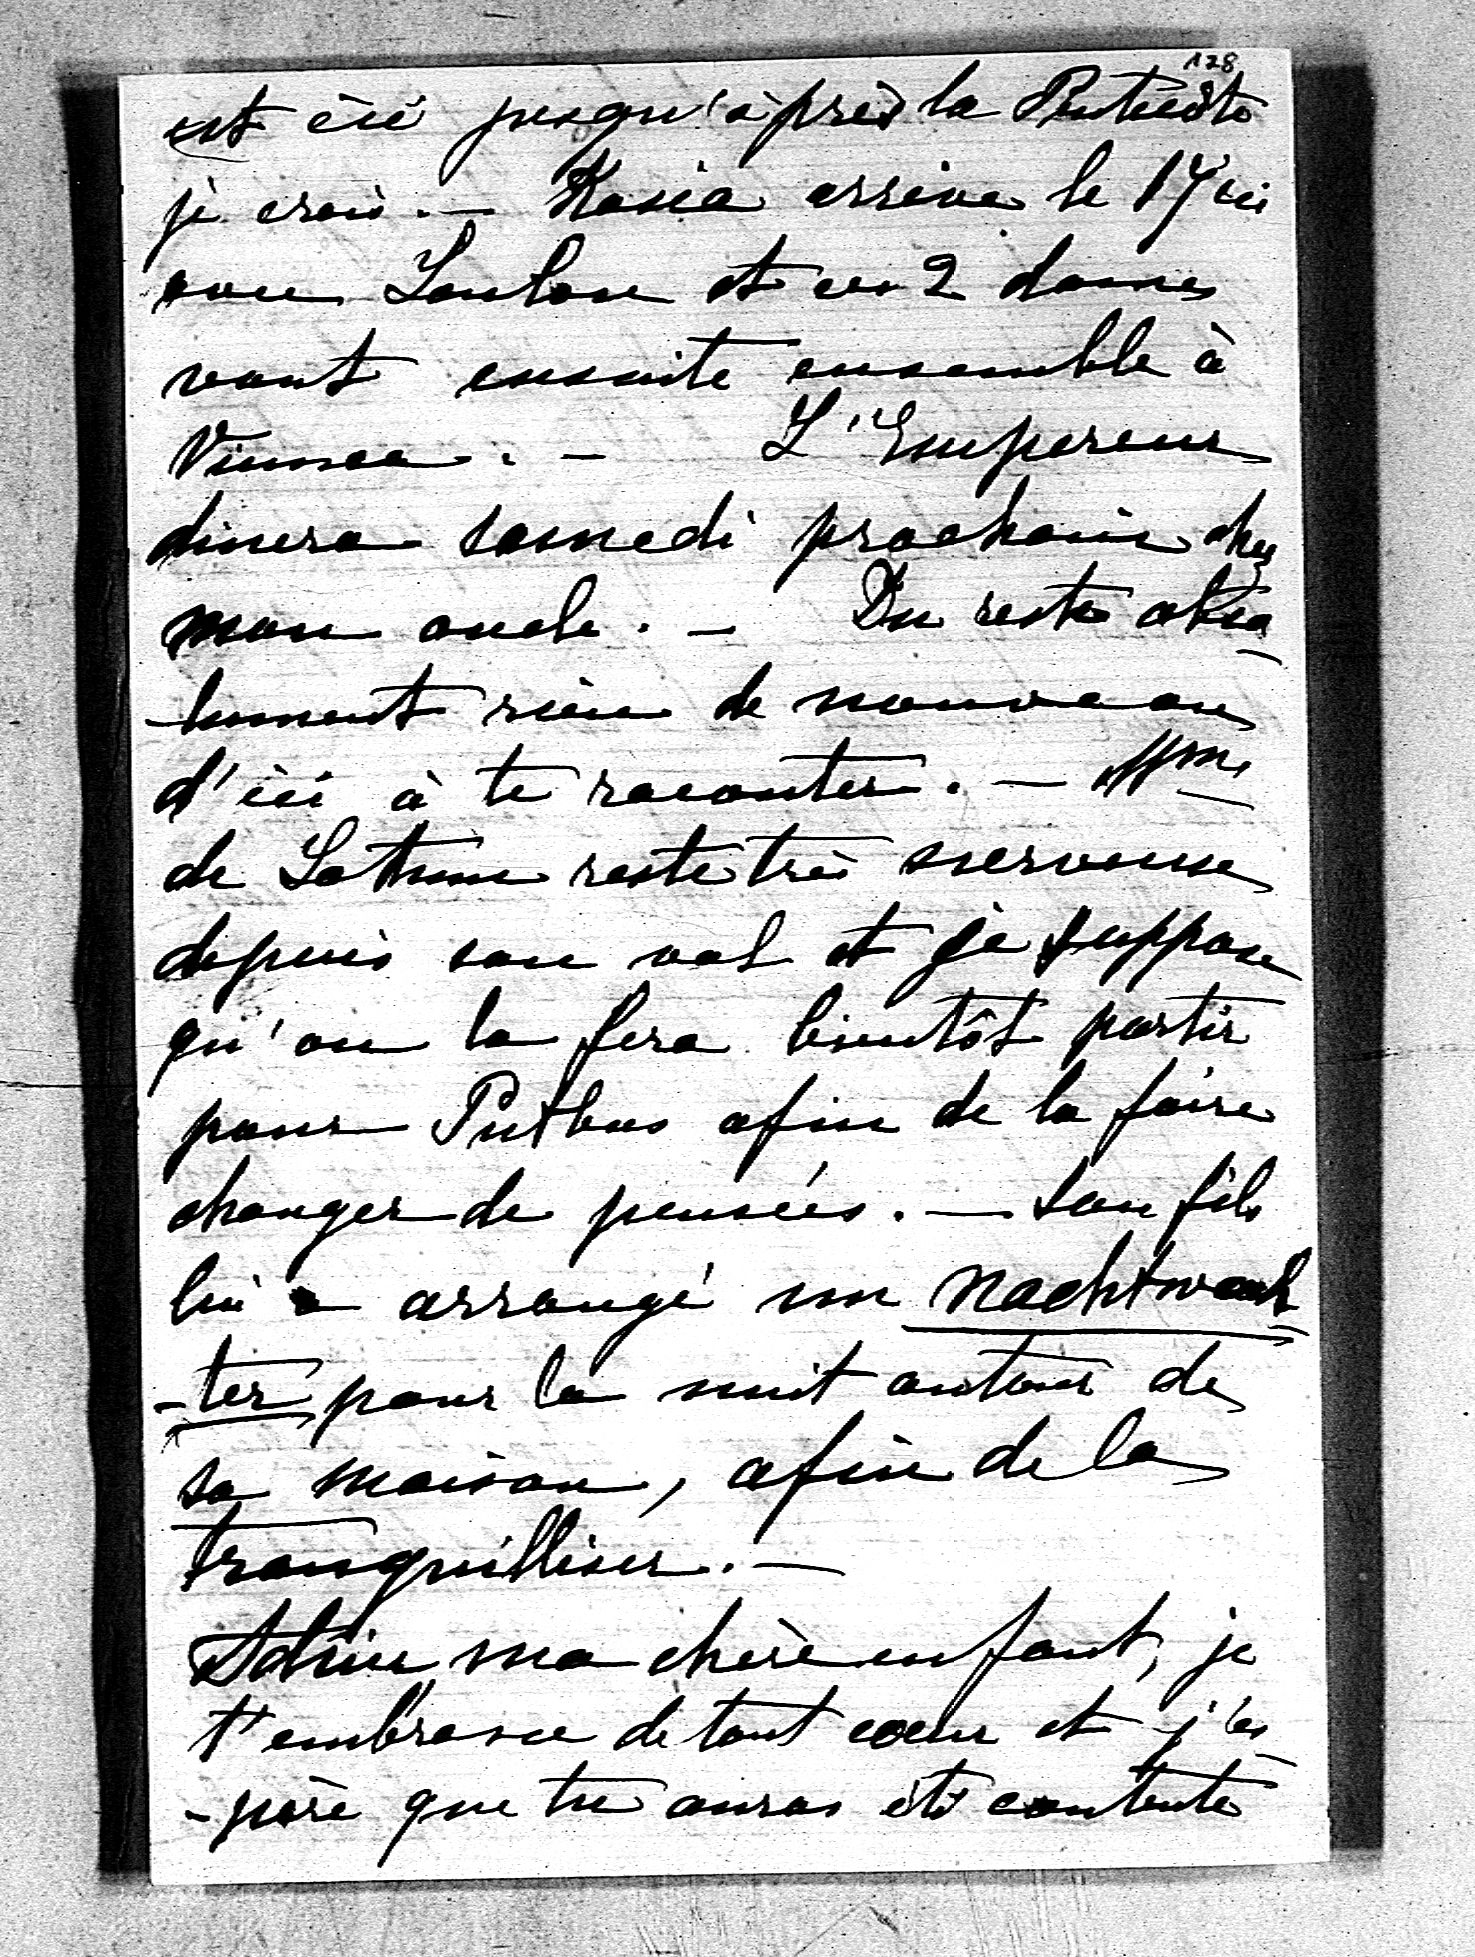 128
est ici jusqu'après la Pentecôte
je crois. — Kasia arrive le 17 ici
avec Loulou et ces 2 dames
vont ensuite ensemble à
Vienne. — L'Empereur
dinera samedi prochain chez
mon oncle. — Du reste abso
-lument rien de nouveau
d'ici à te raconter. — Mme
de Lottum reste très nerveuse
depuis son vol et je suppose
qu'on la fera bientôt partir
pour Putbus afin de la faire
changer de pensées. — Son fils
lui a arrangé un Nachtwäch
-ter pour la nuit autour de
sa maison, afin de la
tranquilliser. —
Adieu ma chère enfant, je
t'embrasse de tout coeur et j'es
-père que tu auras été contente